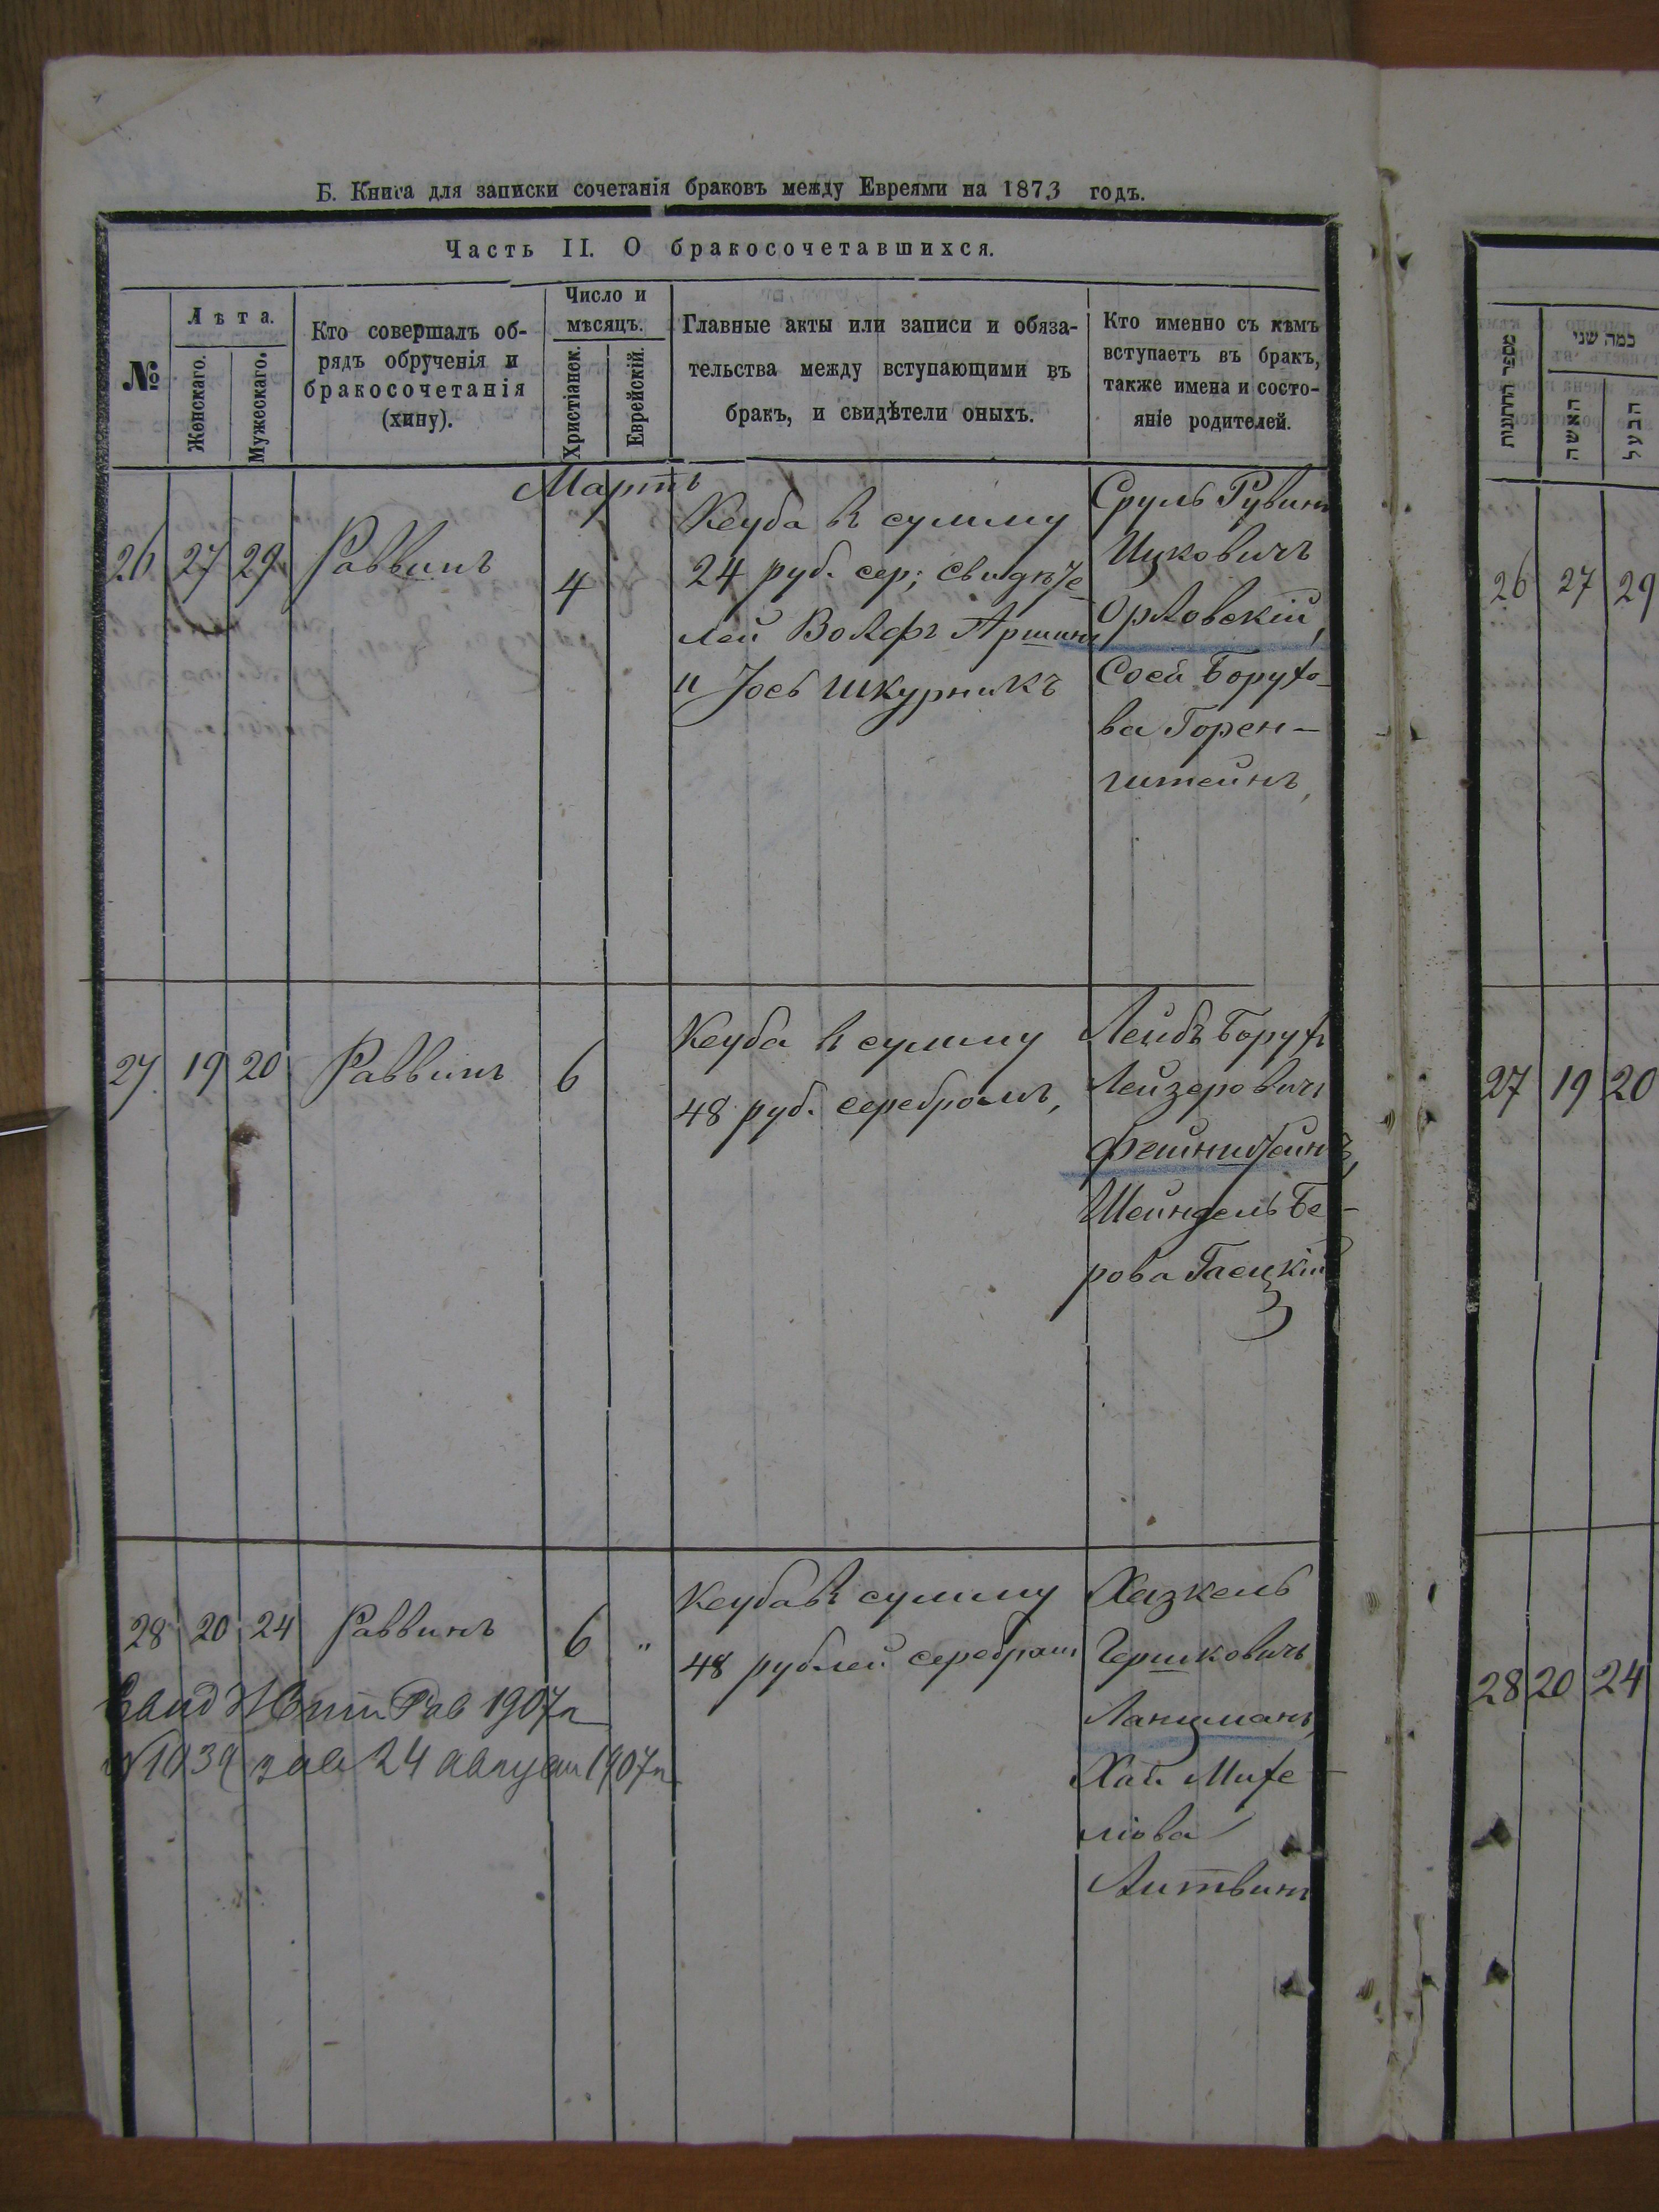 Б. Книга для записки сочетанія браковъ между Евреями на 1873 годъ.
Часть II. О бракосочетавшихся.
№
Лѣта.
Женскаго.
Мужескаго.
Кто совершалъ об-
рядъ обрученія и
бракосочетанія
(хину).
Число и
мѣсяцъ.
Христіанск.
Еврейскій.
Главные акты или записи и обяза-
тельства между вступающими въ
бракъ, и свидѣтели оныхъ.
Кто именно съ кѣмъ
вступаетъ въ бракъ,
также имена и состо-
яніе родителей.
Мартъ
26 27 29 Раввинъ 4
Кеуба в сумму
24 руб. сер; свидѣте
лей Вольфъ Аршинъ
и Іось Шкурникъ
Сруль Рувинъ
Ицковичъ
Орловскій,
Сося Борухо-
ва Горен-
штейнъ,
27 19 20 Раввинъ 6
Кеуба в сумму
48 руб. серебромъ,
Лейбъ Борухъ
Лейзеровичъ
Файнштейнъ,
Шейндель Бе-
рова Гаецкій
28 20 24 Раввинъ 6 "
Кеуба в сумму
48 рублей серебромъ
Хазкель
Гершковичъ
Ланцманъ
Хая Михе-
лова
Литвинъ
1907г
24 август 1907г
מספר החתונות
כמה שני
האשה
הבעל
26 27 29
27 19 20
28 20 24